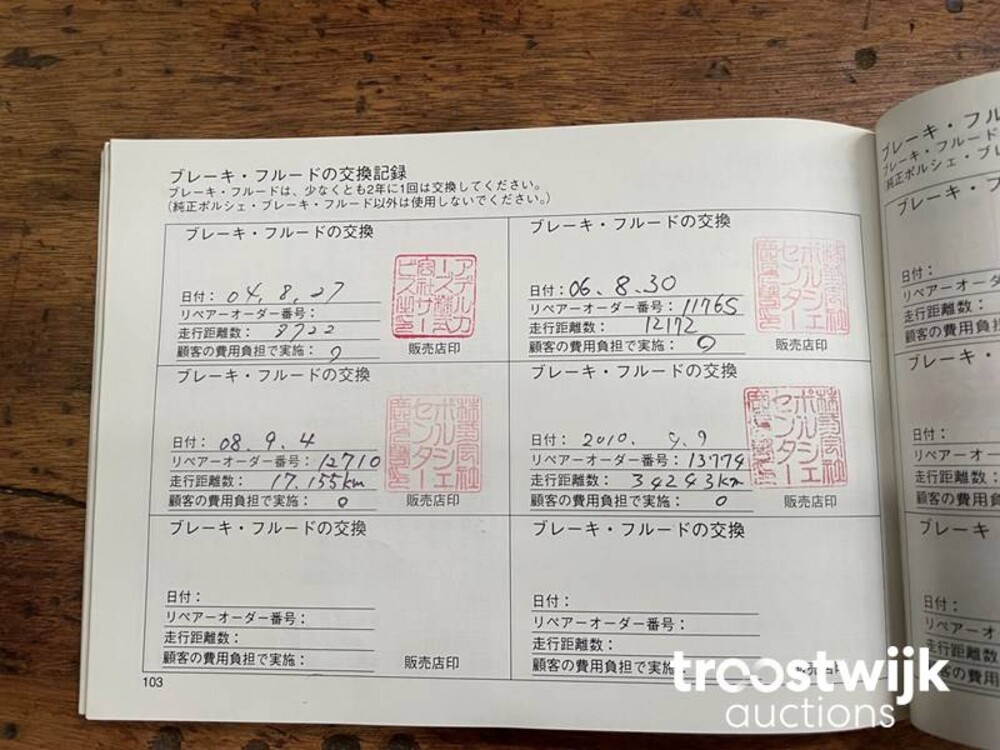 ブレーキ・フルードの交換記録
ブレーキ・フルードは、少なくとも2年に1回は交換してください。
(純正ポルシェ・ブレーキ・フルード以外は使用しないでください。)
ブレーキ・フルードの交換
日付: 04, 8, 27
リペアーオーダー番号:
走行距離数: 8722
顧客の費用負担で実施: 0
アデルカーズ株式会社サービス
販売店印
ブレーキ・フルードの交換
日付: 06. 8. 30
リペアーオーダー番号: 11765
走行距離数: 12172
顧客の費用負担で実施: 0
株式会社ポルシェセンター
販売店印
ブレーキ・フルードの交換
日付: 08. 9. 4
リペアーオーダー番号: 12710
走行距離数: 17.155km
顧客の費用負担で実施: 0
株式会社ポルシェセンター
販売店印
ブレーキ・フルードの交換
日付: 2010. 9. 9
リペアーオーダー番号: 13774
走行距離数: 34243km
顧客の費用負担で実施: 0
株式会社ポルシェセンター
販売店印
ブレーキ・フルードの交換
日付:
リペアーオーダー番号:
走行距離数:
顧客の費用負担で実施:
販売店印
ブレーキ・フルードの交換
日付:
リペアーオーダー番号:
走行距離数:
顧客の費用負担で実施:
販売店印
103
ブレーキ・フル
ブレーキ・フルード
(純正ポルシェ・ブレ
ブレーキ・フ
日付:
リペアーオーダ
走行距離数:
顧客の費用負
ブレーキ・
日付:
リペアーオー
走行距離数:
顧客の費用
ブレーキ
日付:
リペアーオ
走行距離数
の費用
troostwijk
auctions